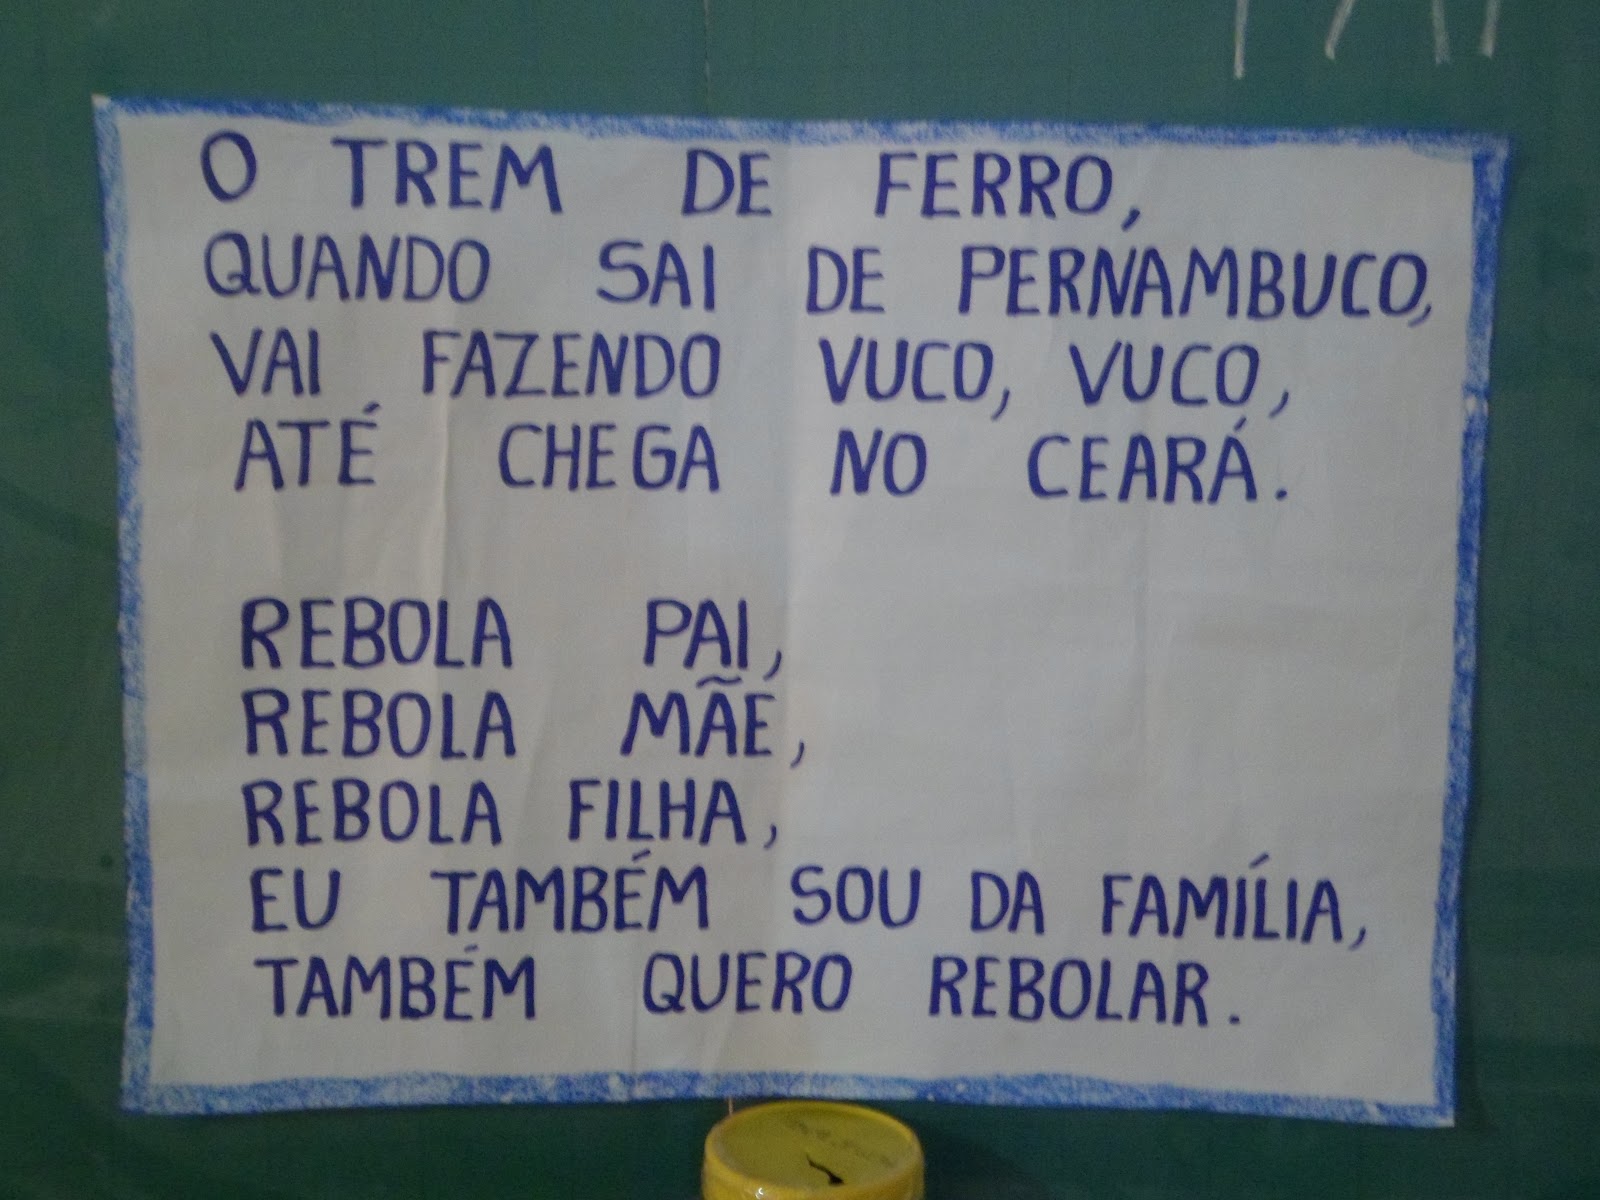 O TREM DE FERRO,
QUANDO SAI DE PERNAMBUCO,
VAI FAZENDO VUCO, VUCO,
ATÉ CHEGA NO CEARÁ.
REBOLA PAI,
REBOLA MÃE,
REBOLA FILHA,
EU TAMBÉM SOU DA FAMÍLIA,
TAMBÉM QUERO REBOLAR.